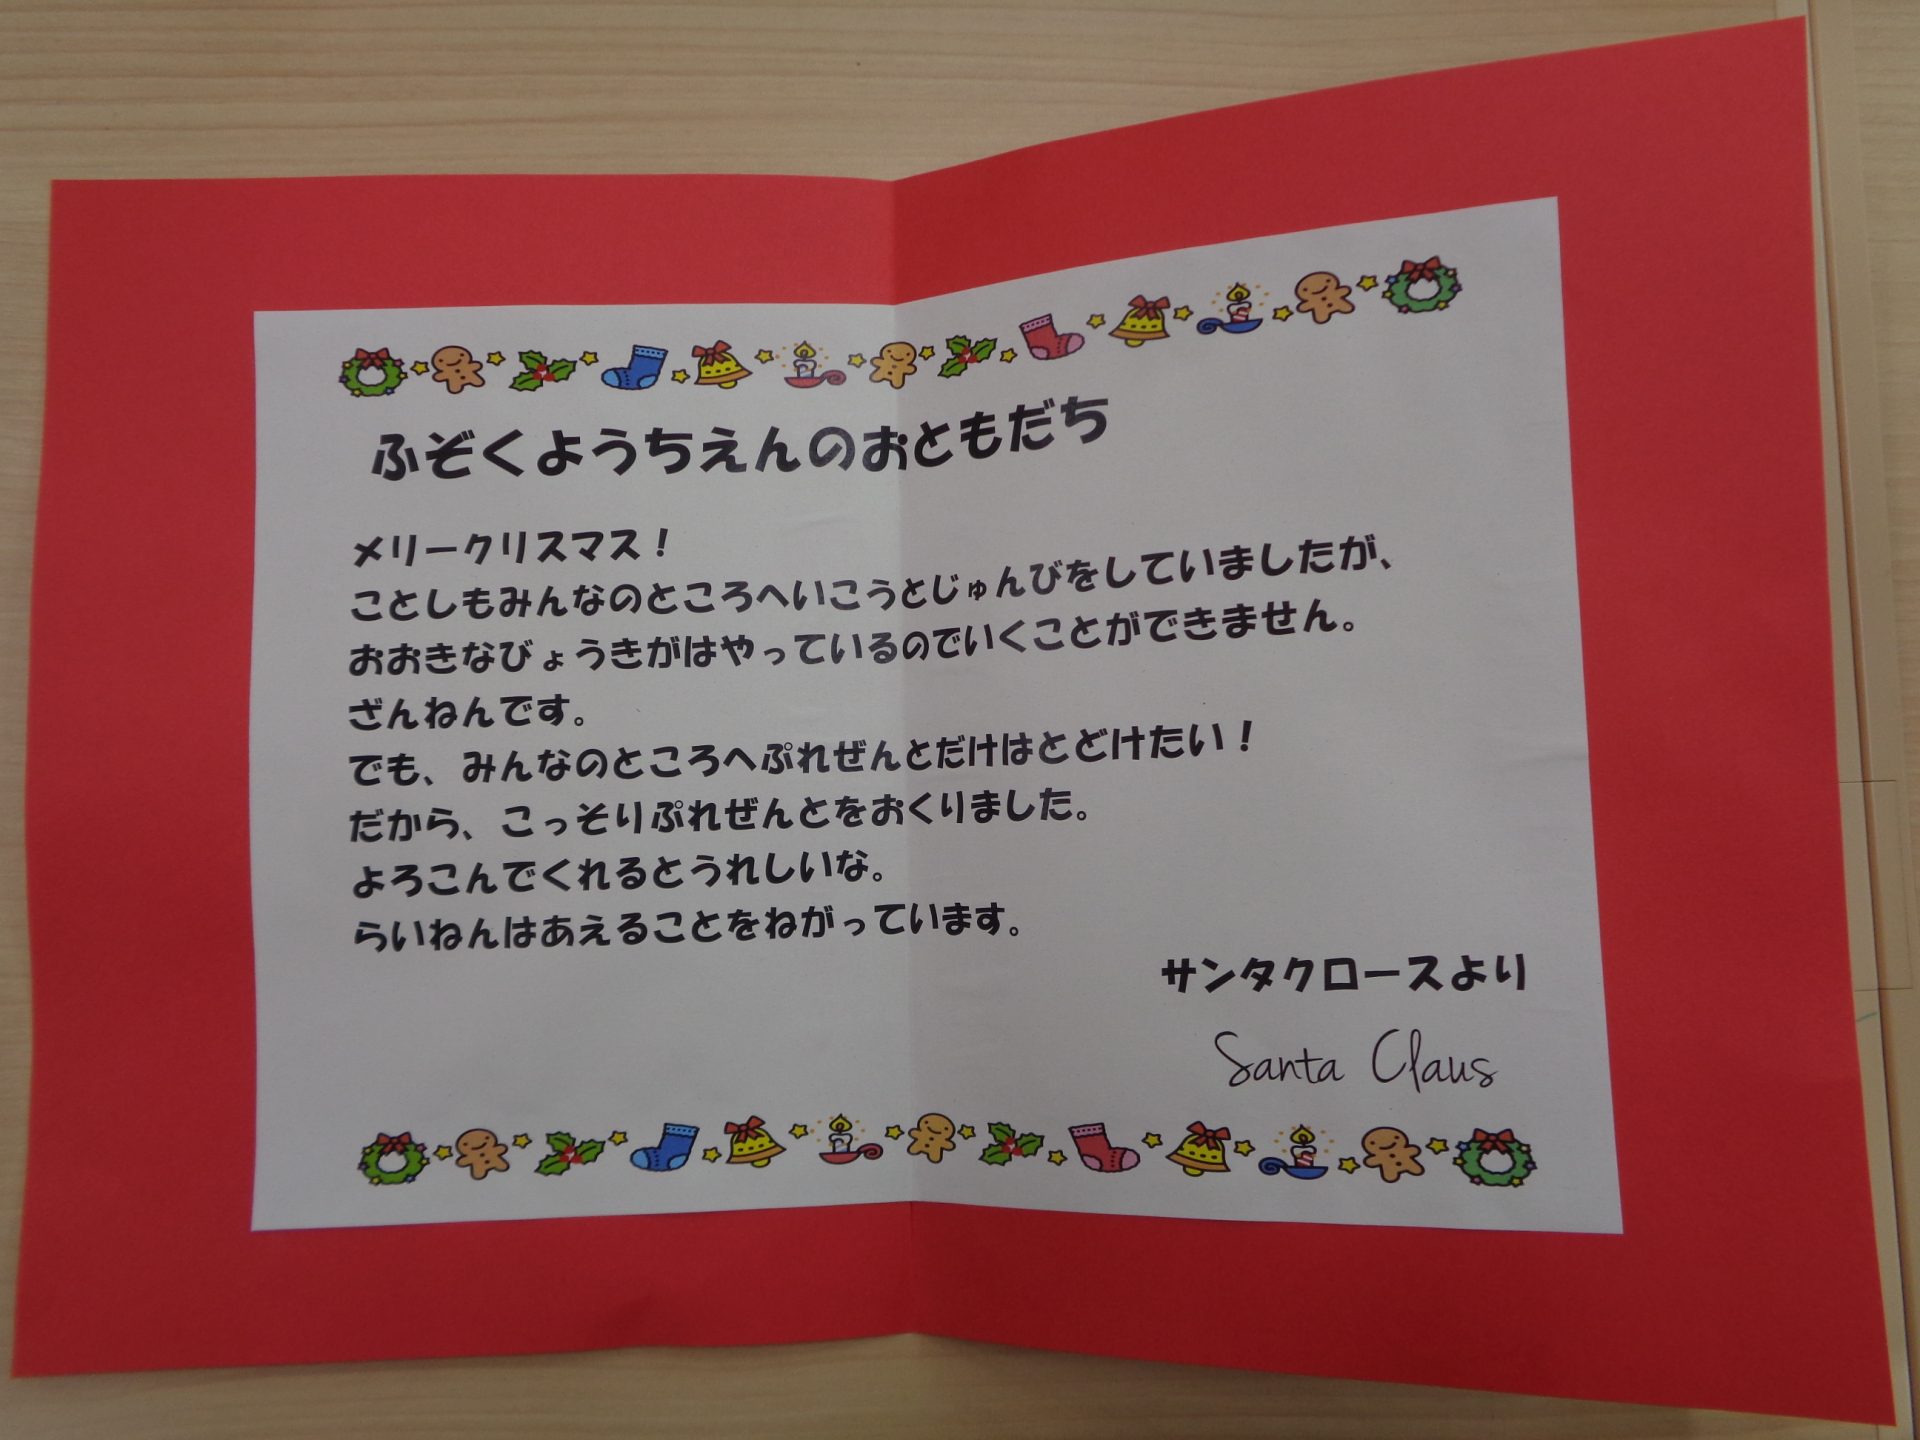 ふぞくようちえんのおともだち
メリークリスマス！
ことしもみんなのところへいこうとじゅんびをしていましたが、
おおきなびょうきがはやっているのでいくことができません。
ざんねんです。
でも、みんなのところへぷれぜんとだけはとどけたい！
だから、こっそりぷれぜんとをおくりました。
よろこんでくれるとうれしいな。
らいねんはあえることをねがっています。
サンタクロースより
Santa Claus